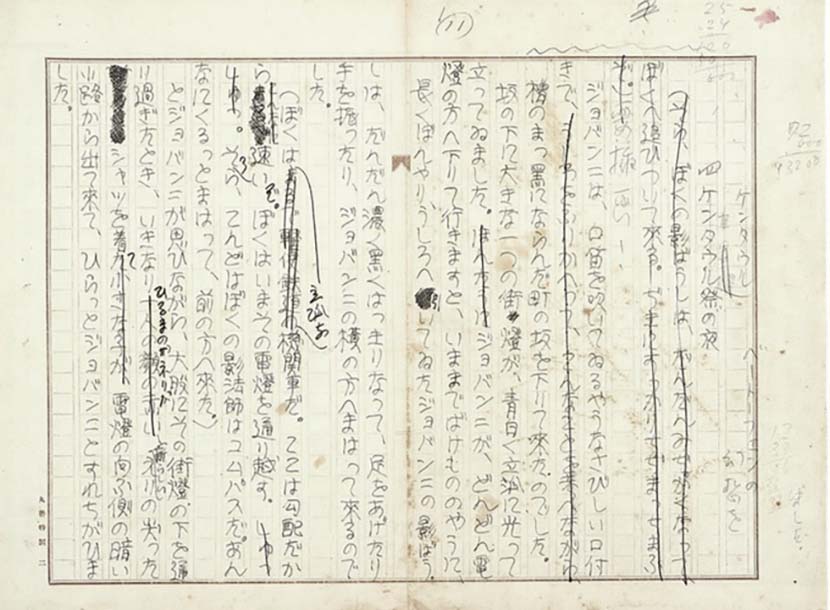 ベートーフェンの
幻想を
ケンタウル
四 ケンタウル祭の夜
(そら、ぼくの影ぼうしは、だんだんみぢかくなって、
ぼくへ追ひついて来る。ぢきにすっかりちぢまっちまふ
ぞ。)
ジョバンニは、口笛を吹いてゐるやうなさびしい口付
きで、うしろをふりかへって、こんなことを考へながら、
檜のまっ黒にならんだ町の坂を下りて来たのでした。
坂の下に大きな一つの街燈が、青白く立派に光って
立ってゐました。ほんたうにジョバンニが、どんどん電
燈の方へ下りて行きますと、いままでばけもののやうに、
長くぼんやり、うしろへ引いてゐたジョバンニの影ぼう
しは、だんだん濃く黒くはっきりなって、足をあげたり
手を振ったり、ジョバンニの横の方へまはって来るので
した。
(ぼくはまるで軽便鉄道の機関車だ。ここは勾配だか
立派な
ら速いぞ。ぼくはいまその電燈を通り越す。しゅっ
しゅっ。そうら、こんどはぼくの影法師はコムパスだ。あん
なにくるっとまはって、前の方へ来た。)
とジョバンニが思ひながら、大股にその街燈の下を通
り過ぎたとき、いきなり一人の顔の赤い
ひるまのザネリが、
新らしいえりの尖った
シャツを着て
小さな子が、電燈の向ふ側の暗い
小路から出て来て、ひらっとジョバンニとすれちがひま
した。
丸善特製 二